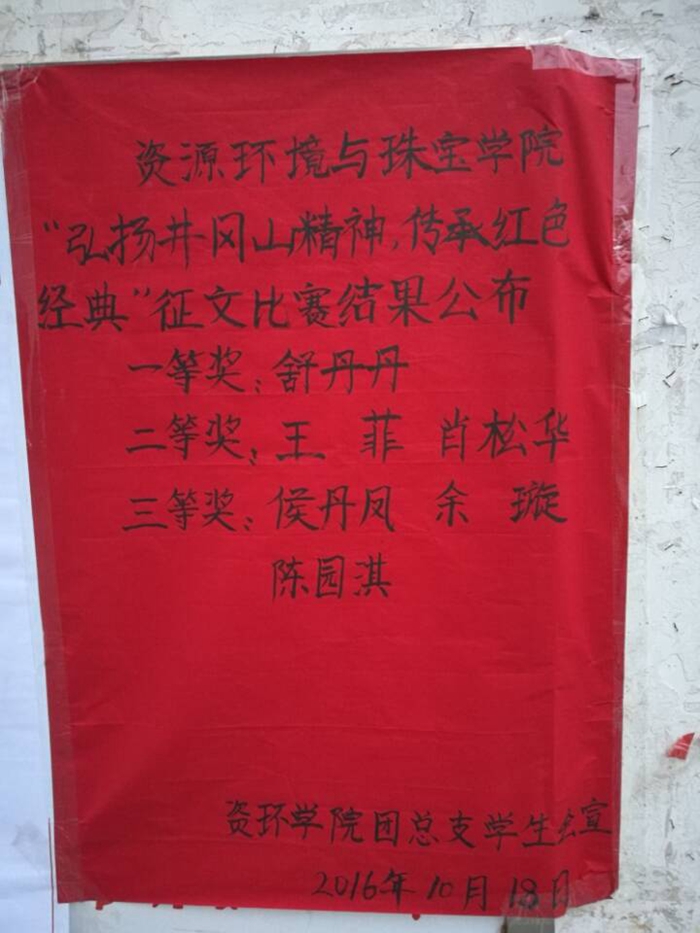 资源环境与珠宝学院
“弘扬井冈山精神,传承红色
经典”征文比赛结果公布
一等奖:舒丹丹
二等奖:王 菲 肖松华
三等奖:侯丹凤 余 璇
陈园淇
资环学院团总支学生会宣
2016年10月18日